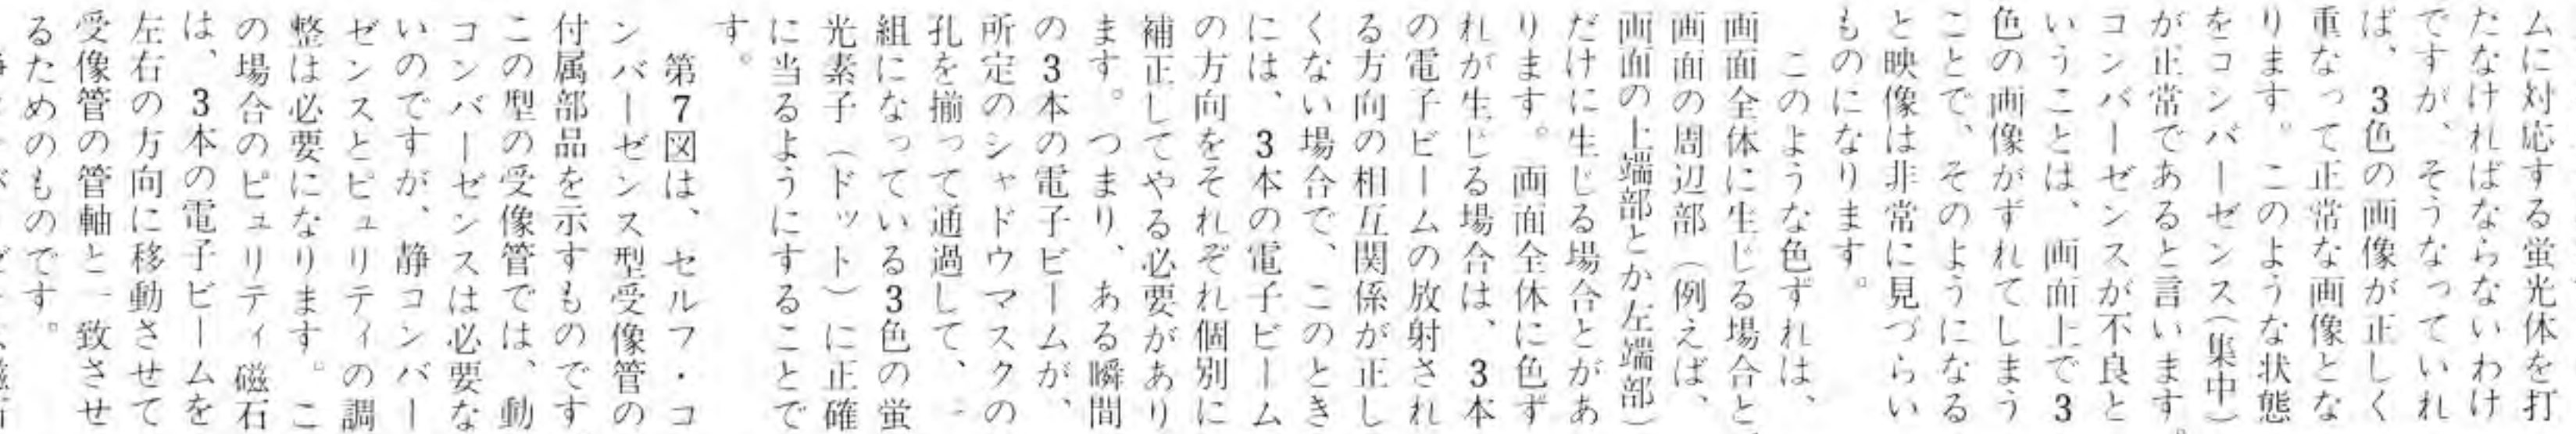 ムに対応する蛍光体を打
たなければならないわけ
ですが、そうなっていれ
ば、3色の画像が正しく
重なって正常な画像とな
ります。このような状態
をコンバーゼンス(集中)
が正常であると言います。
コンバーゼンスが不良と
いうことは、画面上で3
色の画像がずれてしまう
ことで、そのようになる
と映像は非常に見づらい
ものになります。
このような色ずれは、
画面全体に生じる場合と
画面の周辺部(例えば、
画面の上端部とか左端部)
だけに生じる場合とがあ
ります。画面全体に色ず
れが生じる場合は、3本
の電子ビームの放射され
る方向の相互関係が正し
くない場合で、このとき
には、3本の電子ビーム
の方向をそれぞれ個別に
補正してやる必要があり
ます。つまり、ある瞬間
の3本の電子ビームが、
所定のシャドウマスクの
孔を揃って通過して、一
組になっている3色の蛍
光素子(ドット)に正確
に当るようにすることで
す。
第7図は、セルフ・コ
ンバーゼンス型受像管の
付属部品を示すものです
この型の受像管では、動
コンバーゼンスは必要な
いのですが、静コンバー
ゼンスとピュリティの調
整は必要になります。こ
の場合のピュリティ磁石
は、3本の電子ビームを
左右の方向に移動させて
受像管の管軸と一致させ
るためのものです。